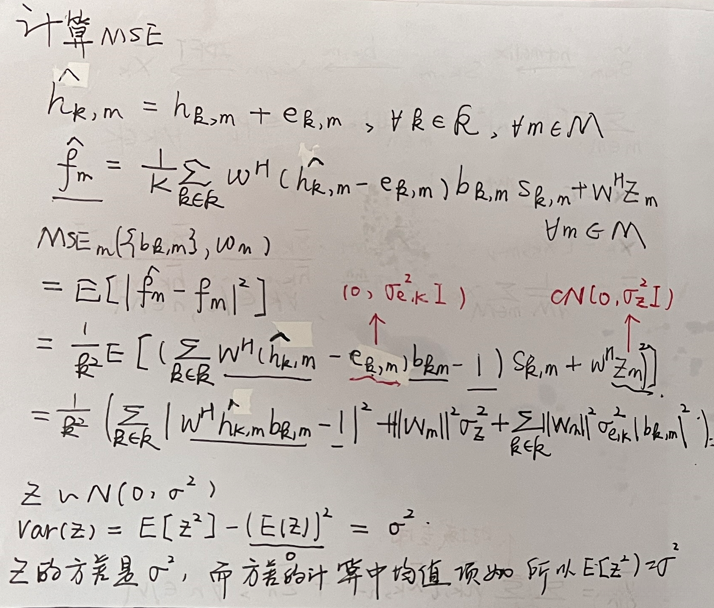 计算MSE
ĥ_{k,m} = h_{k,m} + e_{k,m}, ∀k∈K, ∀m∈M
f̂_m = 1/K Σ_{k∈K} w^H(ĥ_{k,m} - e_{k,m})b_{k,m} s_{k,m} + w^H z_m
∀m∈M
MSE_m({b_{k,m}}, w_m)
= E[|f̂_m - f_m|²] (0, σ²_{e,k} I) CN(0, σ²_z I)
= 1/K² E[(Σ_{k∈K} w^H(ĥ_{k,m} - e_{k,m})b_{k,m} - 1) s_{k,m} + w^H z_m)²].
= 1/K² (Σ_{k∈K} |w^H ĥ_{k,m} b_{k,m} - 1|² + ||w_m||² σ²_z + Σ_{k∈K} ||w_m||² σ²_{e,k} |b_{k,m}|²).
Z ~ N(0, σ²)
var(z) = E[z²] - (E(z))² = σ².
0
Z的方差是σ², 而方差的计算中均值项 所以E[z²]=σ²